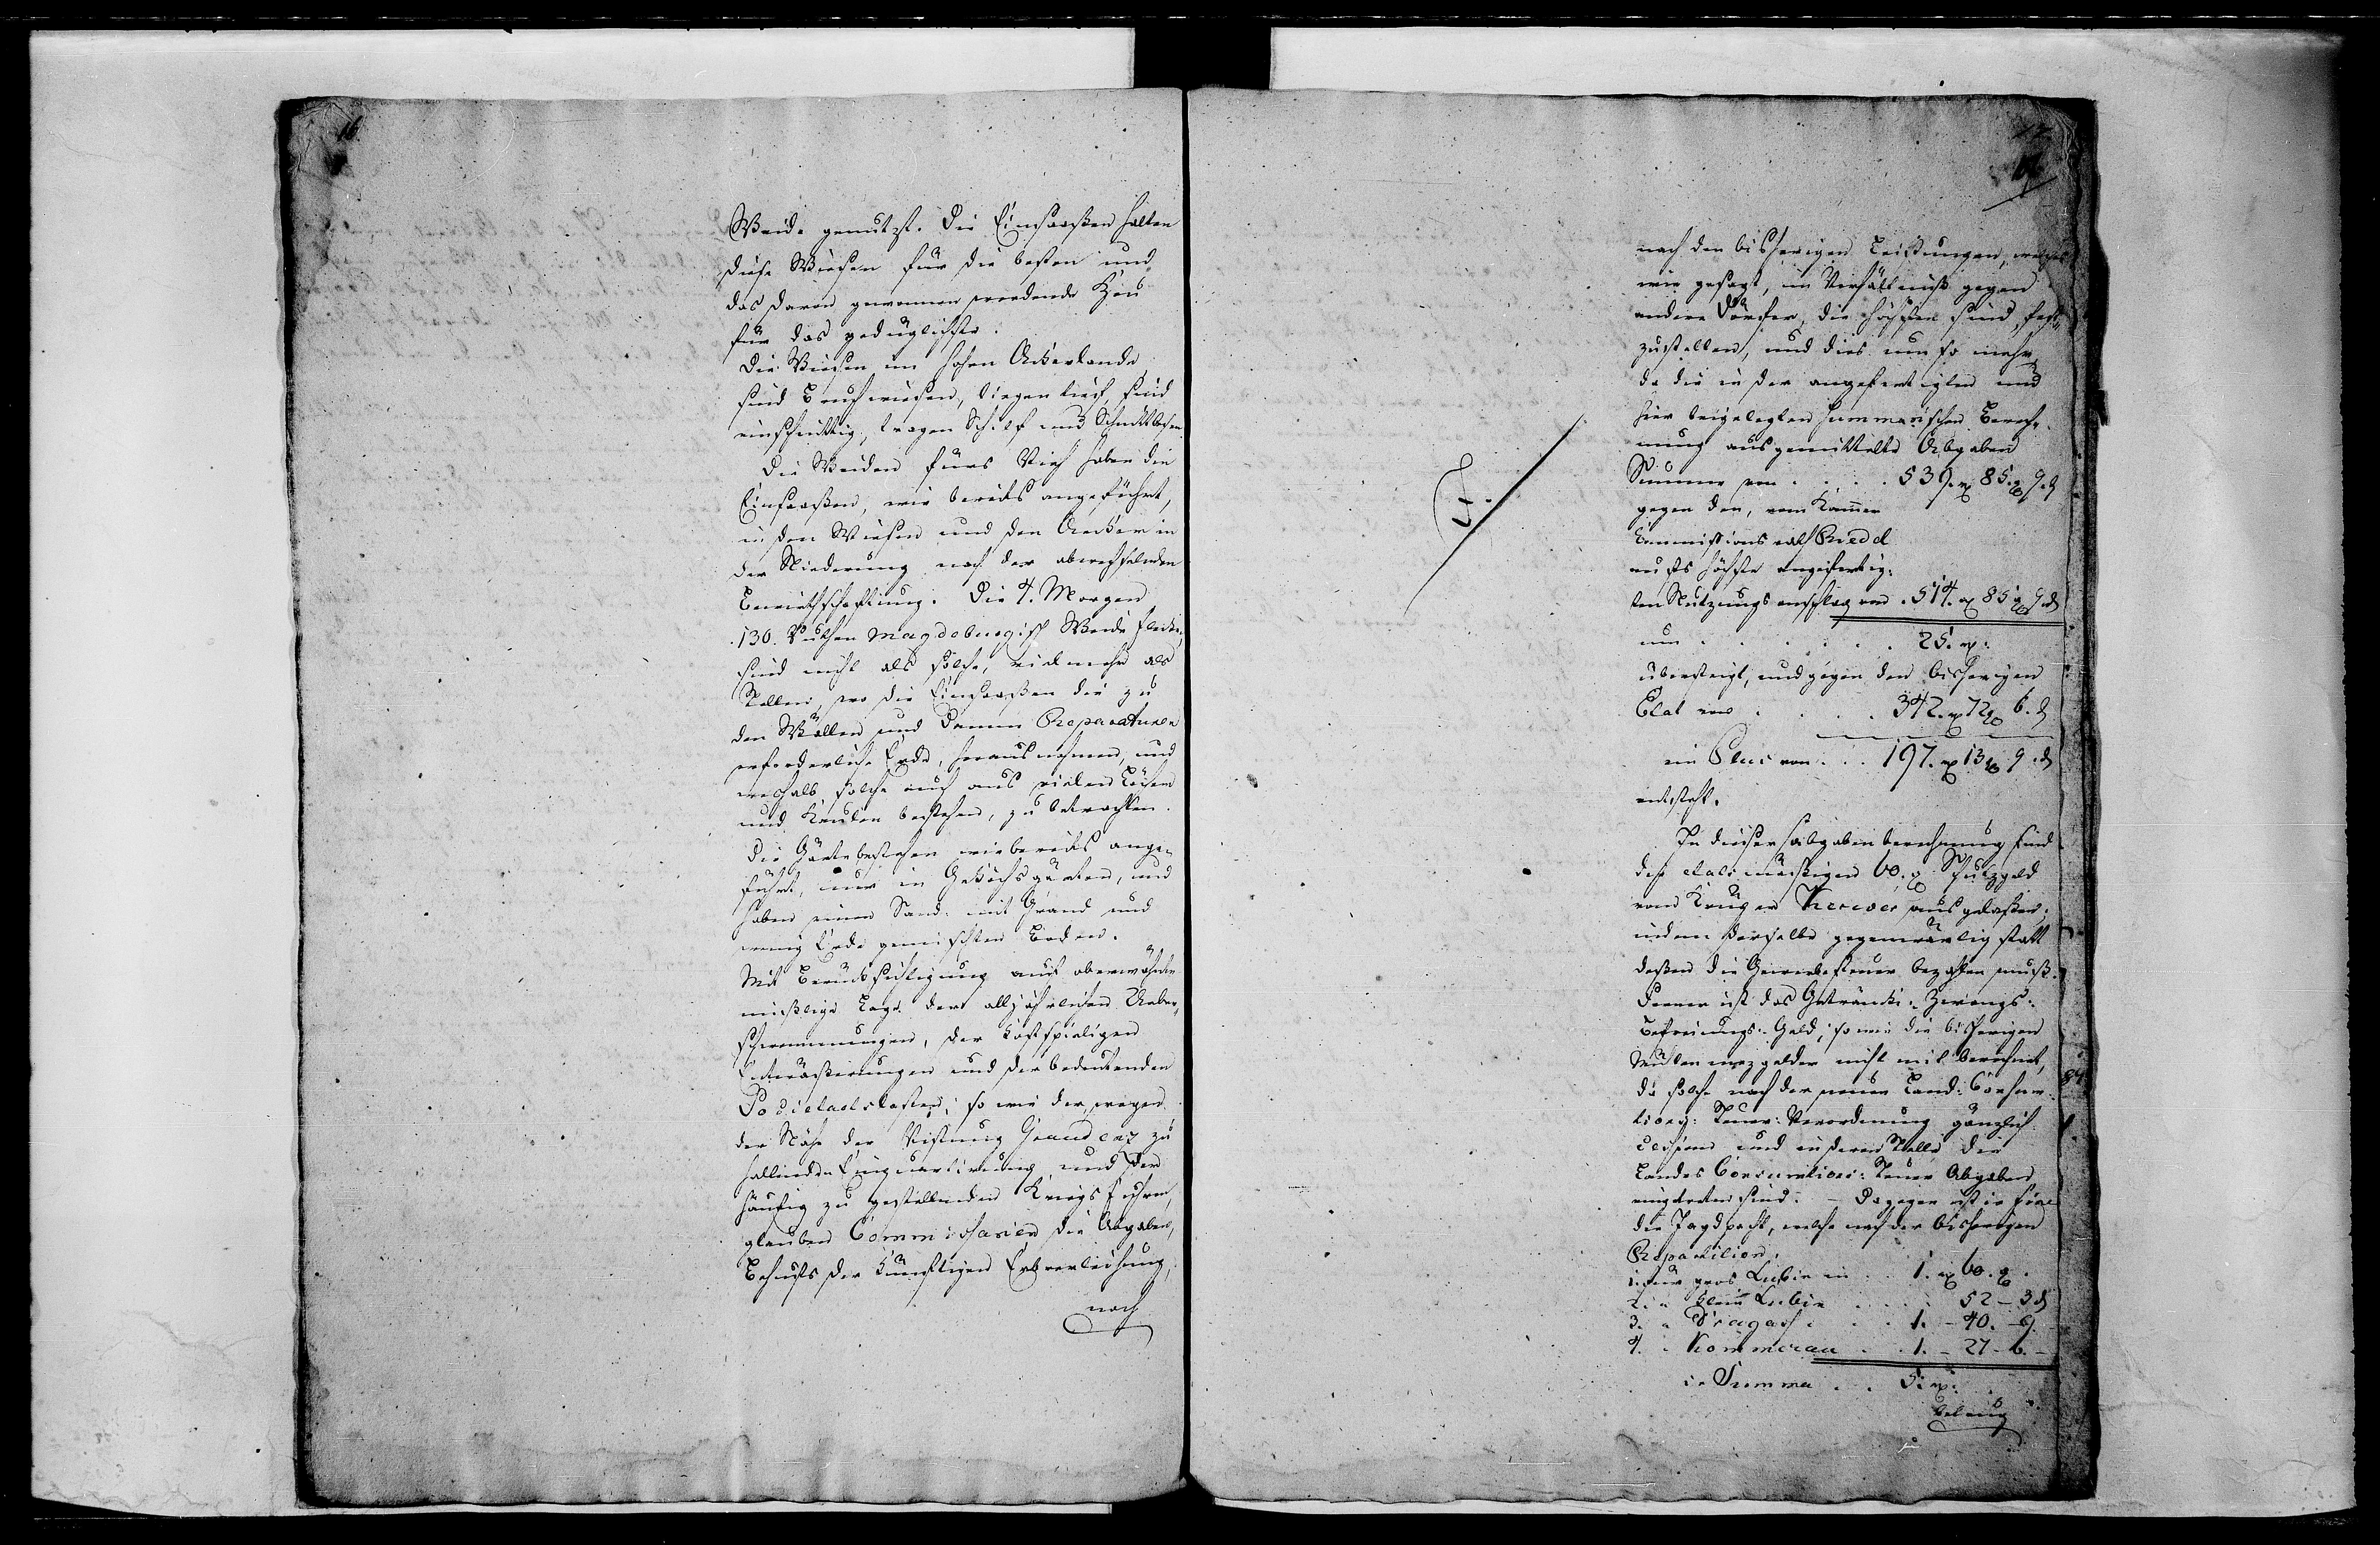 16
Weide genutzt. Die Einsaaßen halten
diese Wiesen für die besten und
das daran gewonnen werdende Heu
für das gedeuglichste.
Die Wiesen im hohen Ackerlande
sind Bruchwiesen, liegen tief, sind
einschnittig, tragen Schilf und
Die Weiden fürs Vieh haben die
Einsaaßen, wie bereits angeführt,
in den Wiesen und den Aeckern in
der Niederung nach der abwechselnden
Bewirthschaftung. Die 4. Morgen
130. Ruthen Magdeburgisch Weide flecke,
sind nicht als solche, vielmehr als
Stellen, wo die Einsaaßen die zu
den Wällen und Damm Reparaturen
erforderliche Erde, herausnehmen, und
weshalb solche auch aus vielen Löchern
und Kaulen bestehen, zu betrachten.
Die Gärte bestehen wie bereits ange„
führt, nur in Gekochsgärten, und
haben einen Sand: mit Grand und
wenig Erde gemischten Boden.
Mit Berücksichtigung auf oberwähnte
mißliche Lage der alljährlichen Ueber„
schwemmungen, der kostspieligen
Entwäßerungen und der bedeutenden
Societaetslasten; so wie der, wegen
der Nähe der Vestung Graudenz zu
haltenden Einquartierung und der
häufig zu gestellenden Kriegsfuhren,
glauben Commissarien die Abgaben,
Behufs der künftigen Erbverleihung,
nach
17
nach den bisherigen Leistungen, welche
wie gesagt, im Verhältniß gegen
andere Dörfer, die höchsten sind, fest„
zustellen, und dies um so mehr,
da die in der angefertigten und
hier beigelegten summarischen Berech„
nung ausgemittelte Abgaben
Summe von . . . . 539. rx 85. g 9. d
gegen den, vom Kammer
Commissions rath
aufs höchste angefertig„
ten Nutzungsanschlag von . 514. rx 85 g 9. d
um . . . . . . . 25. rx.
übersteigt, und gegen den bisherigen
Etat von . . . . . 342. rx 72 g 6. d
ein Plus von . . . 197. rx 13 g 9. d
entsteht.
In dieser Abgabenberechnung sind
die etatsmäßigen 60. g. Schutzgeld
vom Krüger ausgelaßen,
indem derselbe gegenwärtig statt
deßen die Gewerbesteuer bezahlen muß.
Ferner ist das Getränke: Zwangs:
Befreiungs: Geld, so wie die bisherigen
Mühlenmezgelder nicht mit berechnet,
da solche nach der neuen Land: Consum„
tions: Steuer: Verordnung gänzlich
cessiren und in deren Stelle die
Landes Consumtions: Steuer Abgaben
eingetreten sind. – Dagegen ist in fine
die Jagdpacht, welche nach der bisherigen
Repartition
1. für gros Lubin in . . 1. rx 60. g.
2. „ klein Lubin . . . . . 52 – 3 d
3. „ Dragass . . . . 1. – 40. – 9.
4. „ Kommerau . . 1. – 27 – 6. –
in Summa . . 5. rx.
betrug